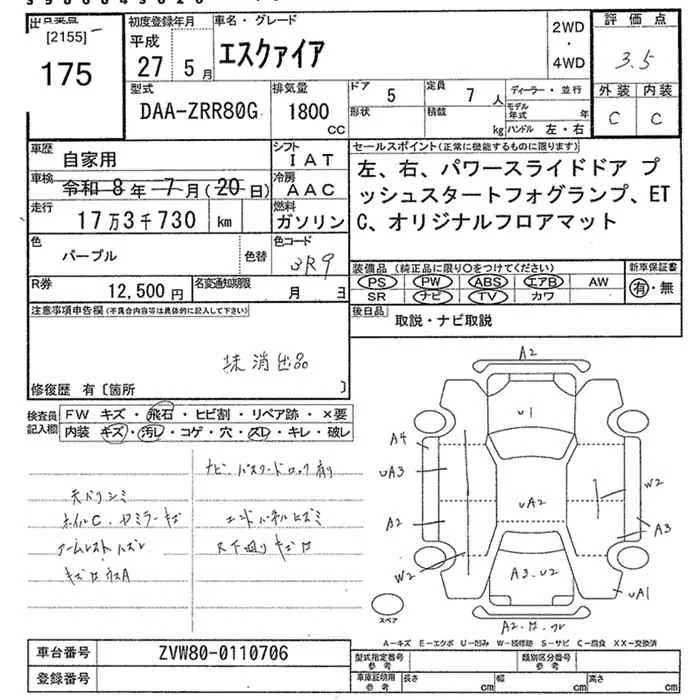 [2155]
175
初度登録年月
平成
27 5月
車名・グレード
エスクァイア
2WD
・
4WD
評価点
3.5
外装 内装
C C
型式
DAA-ZRR80G
排気量
1800
CC
ドア
5
形状
定員
7
人
積載
kg
ディーラー・並行
モデル年式
年
ハンドル 左・右
車歴
自家用
シフト
IAT
車検
令和 8年 7月(20日)
冷房
AAC
走行
17万3千730 km
燃料
ガソリン
色
パープル
色替
色コード
3R9
R券
12,500円
名変通知期限
月 ヨ
セールスポイント(正常に機能するものに限ります)
左、右、パワースライドドア プ
ッシュスタートフォグランプ、ET
C、オリジナルフロアマット
装備品(純正品に限り○をつけてください)
PS PW ABS エアB AW
SR ナビ TV カワ
新車保証書
有・無
後日品
取説・ナビ取説
注意事項申告欄(不具合内容等は具体的に記入して下さい)
抹消出品
修復歴 有〔箇所 〕
検査員
記入欄
FW キズ・飛石・ヒビ割・リペア跡・×要
内装 キズ・汚レ・コゲ・穴・スレ・キレ・破レ
天バリシミ
ナビ、パスワードロック有り
エンドパネルヒズミ
A2
U1
A4
UA3
A2
W2
UA2
W2
A3
UA1
A3.U2
スペア
A-キズ E-エクボ U-凹み W-補修跡 S-サビ C-腐食 XX-交換済
車台番号
ZVW80-0110706
登録番号
型式指定番号
参考
類別区分番号
参考
車庫証明用
参考
長さ cm
幅 cm
高さ cm